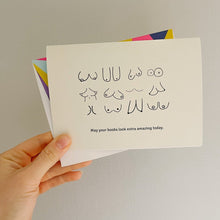 May your boobs look extra amazing today.